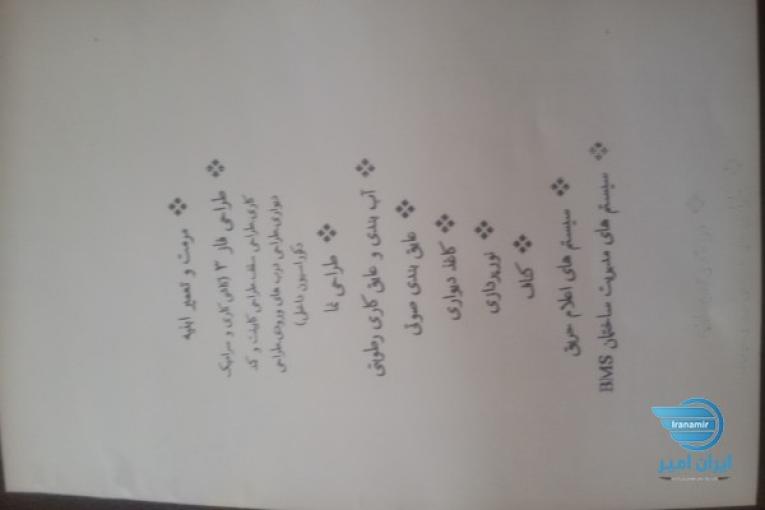 مرمت و تعمیر ابنیه
طراحی فاز ۳ (کاشی کاری و سرامیک
کاری،طراحی سقف،طراحی کابینت و کمد
دیواری،طراحی درب های ورودی،طراحی
دکوراسیون داخلی)
طراحی نما
آب بندی و عایق کاری رطوبتی
عایق بندی صوتی
کاغذ دیواری
نورپردازی
کناف
سیستم های اعلام حریق
سیستم های مدیریت ساختمان BMS
Iranamir
ایران امیر